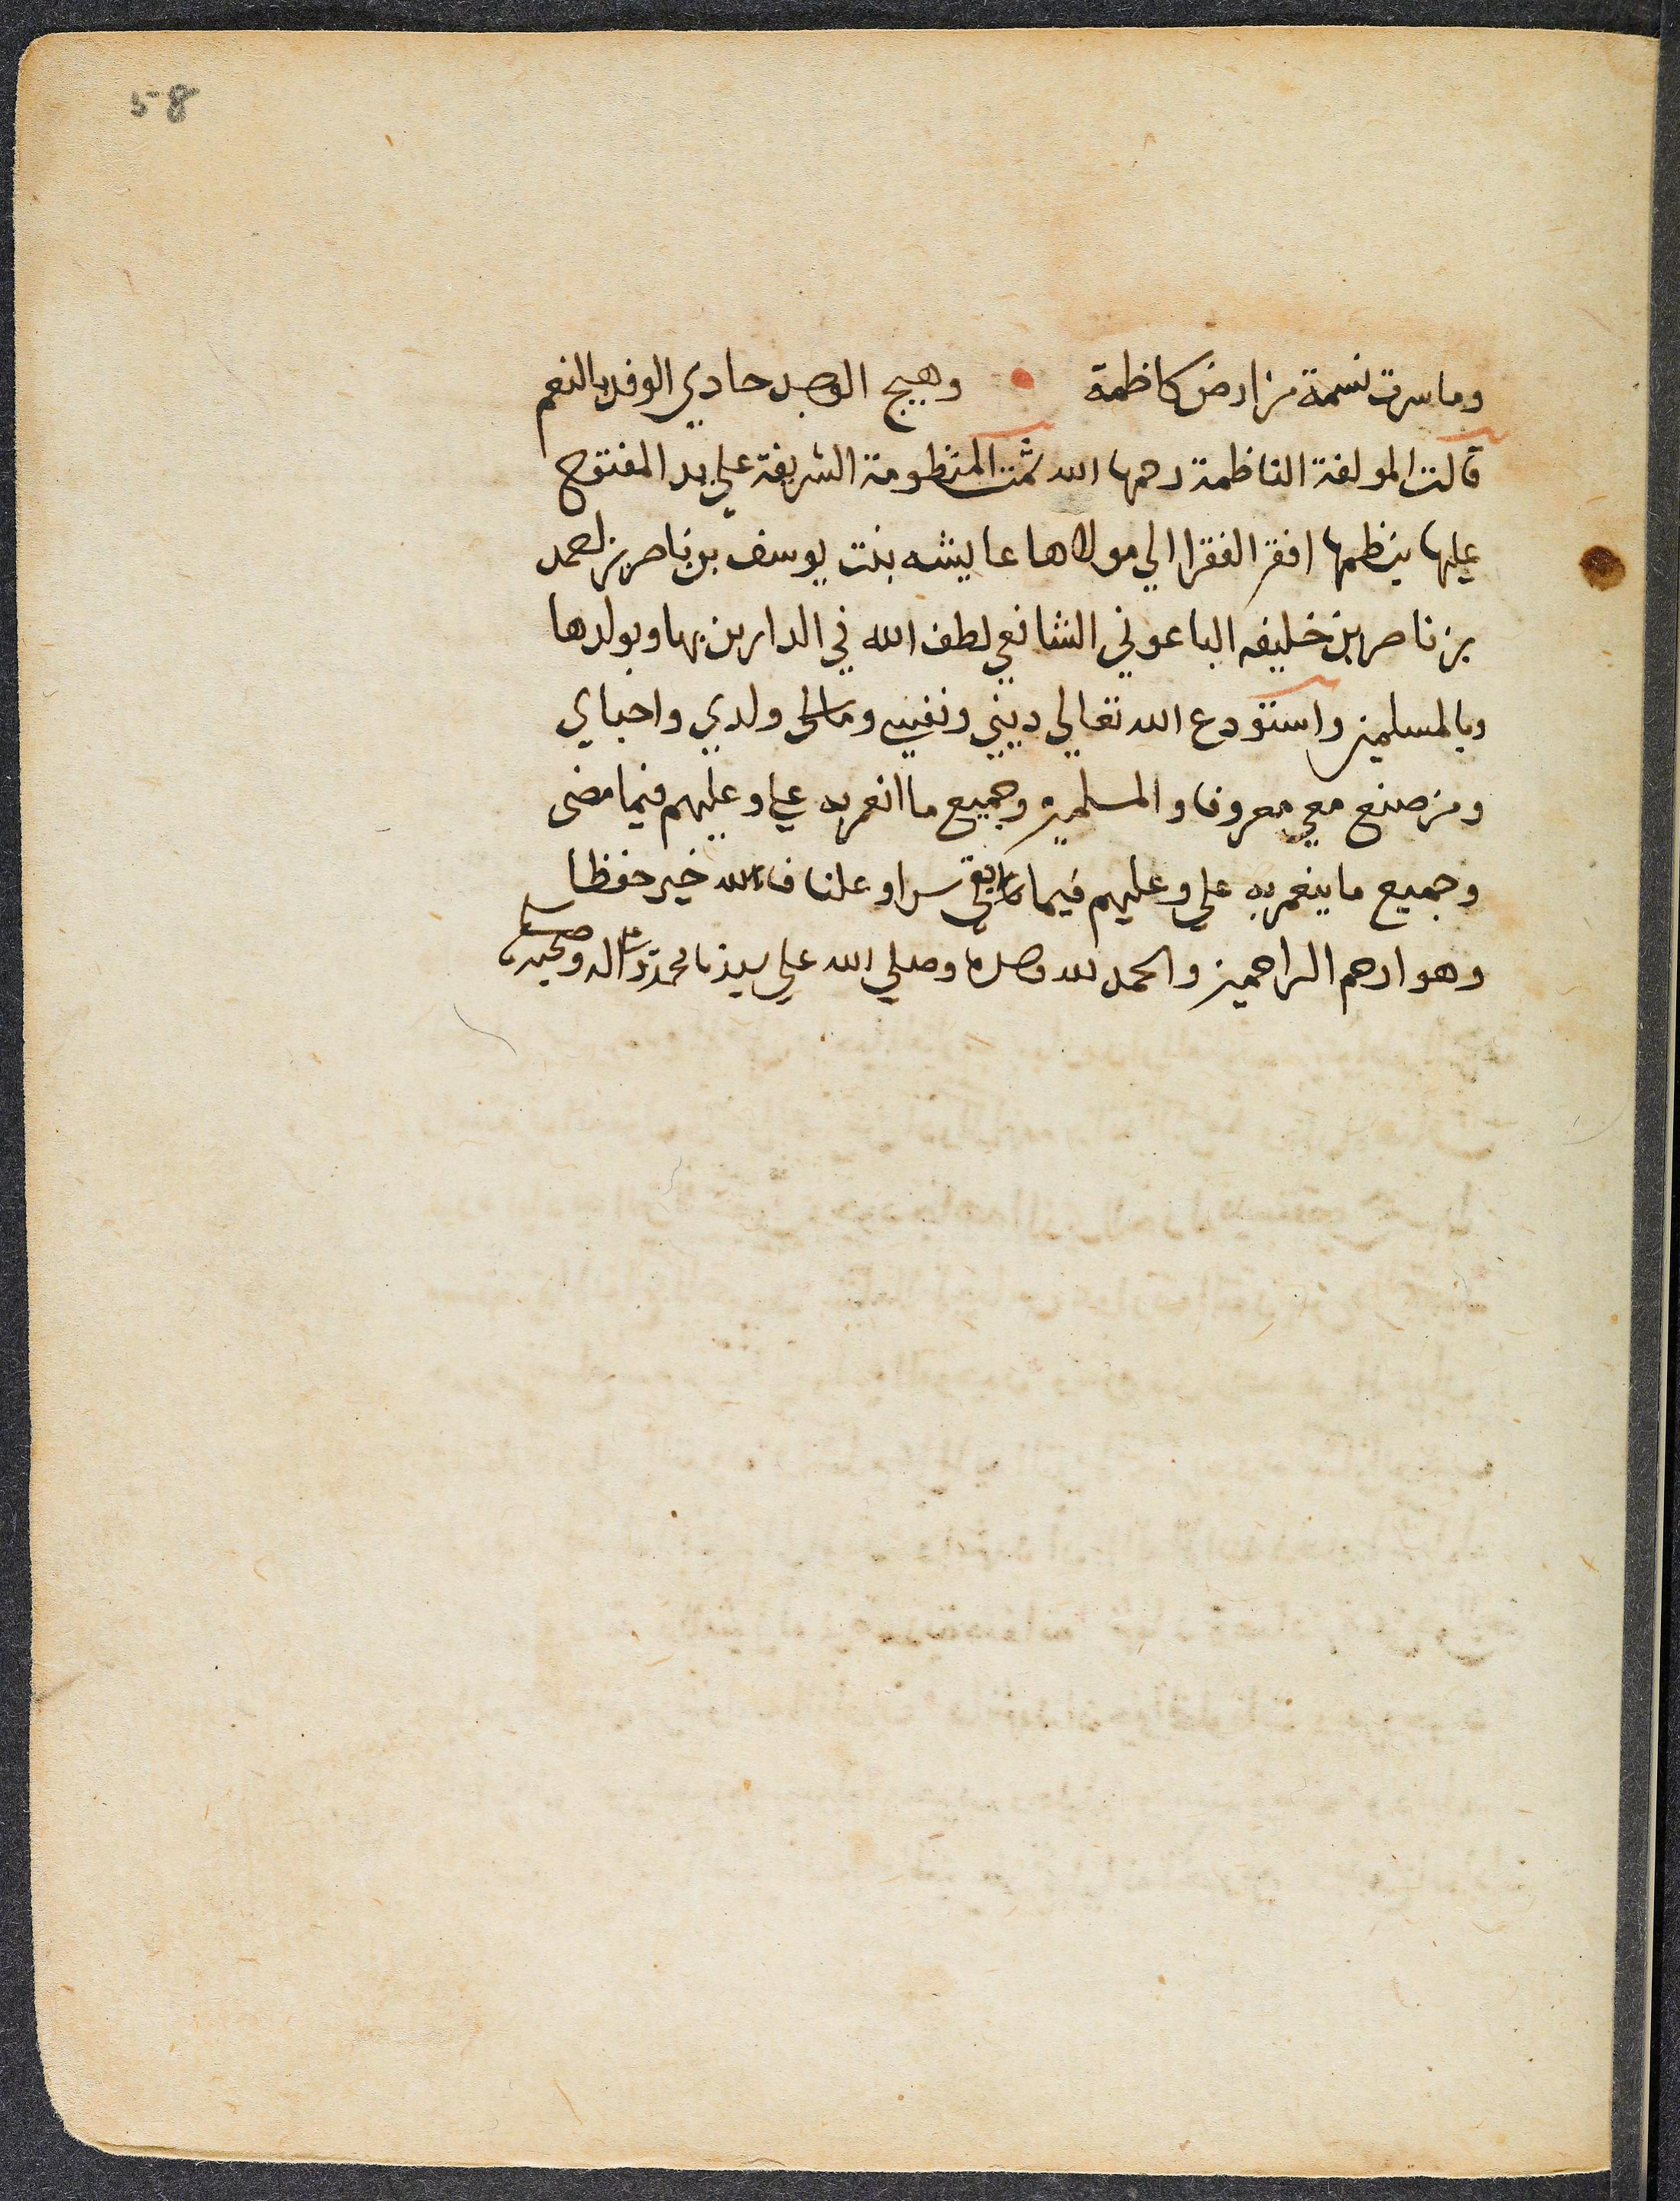 58
وما سرت نسمة من ارض كاظمة • وهيج الوجد حادي الوفد بالنعم
قالت المولفة الناظمة رحمها الله تمت المنظومة الشريفة علي يد المفتوح
عليها بنظمها افقر الفقرا الي مولاها عايشه بنت يوسف بن ناصر بن احمد
بن ناصر بن خليفه الباعوني الشافعي لطف الله في الدارين بها وبولدها
وبالمسلمين واستودع الله تعالي ديني ونفسي ومالي ولدي واحباي
ومن صنع معي معروفا والمسلمين وجميع ما انعم به علي وعليهم فيما مضى
وجميع ما ينعم به علي وعليهم فيما بقي سرا وعلنا فالله خير حفظا
وهو ارحم الراحمين والحمد لله وحده وصلي الله علي سيدنا محمد وعلى اله وصحبه وسلم